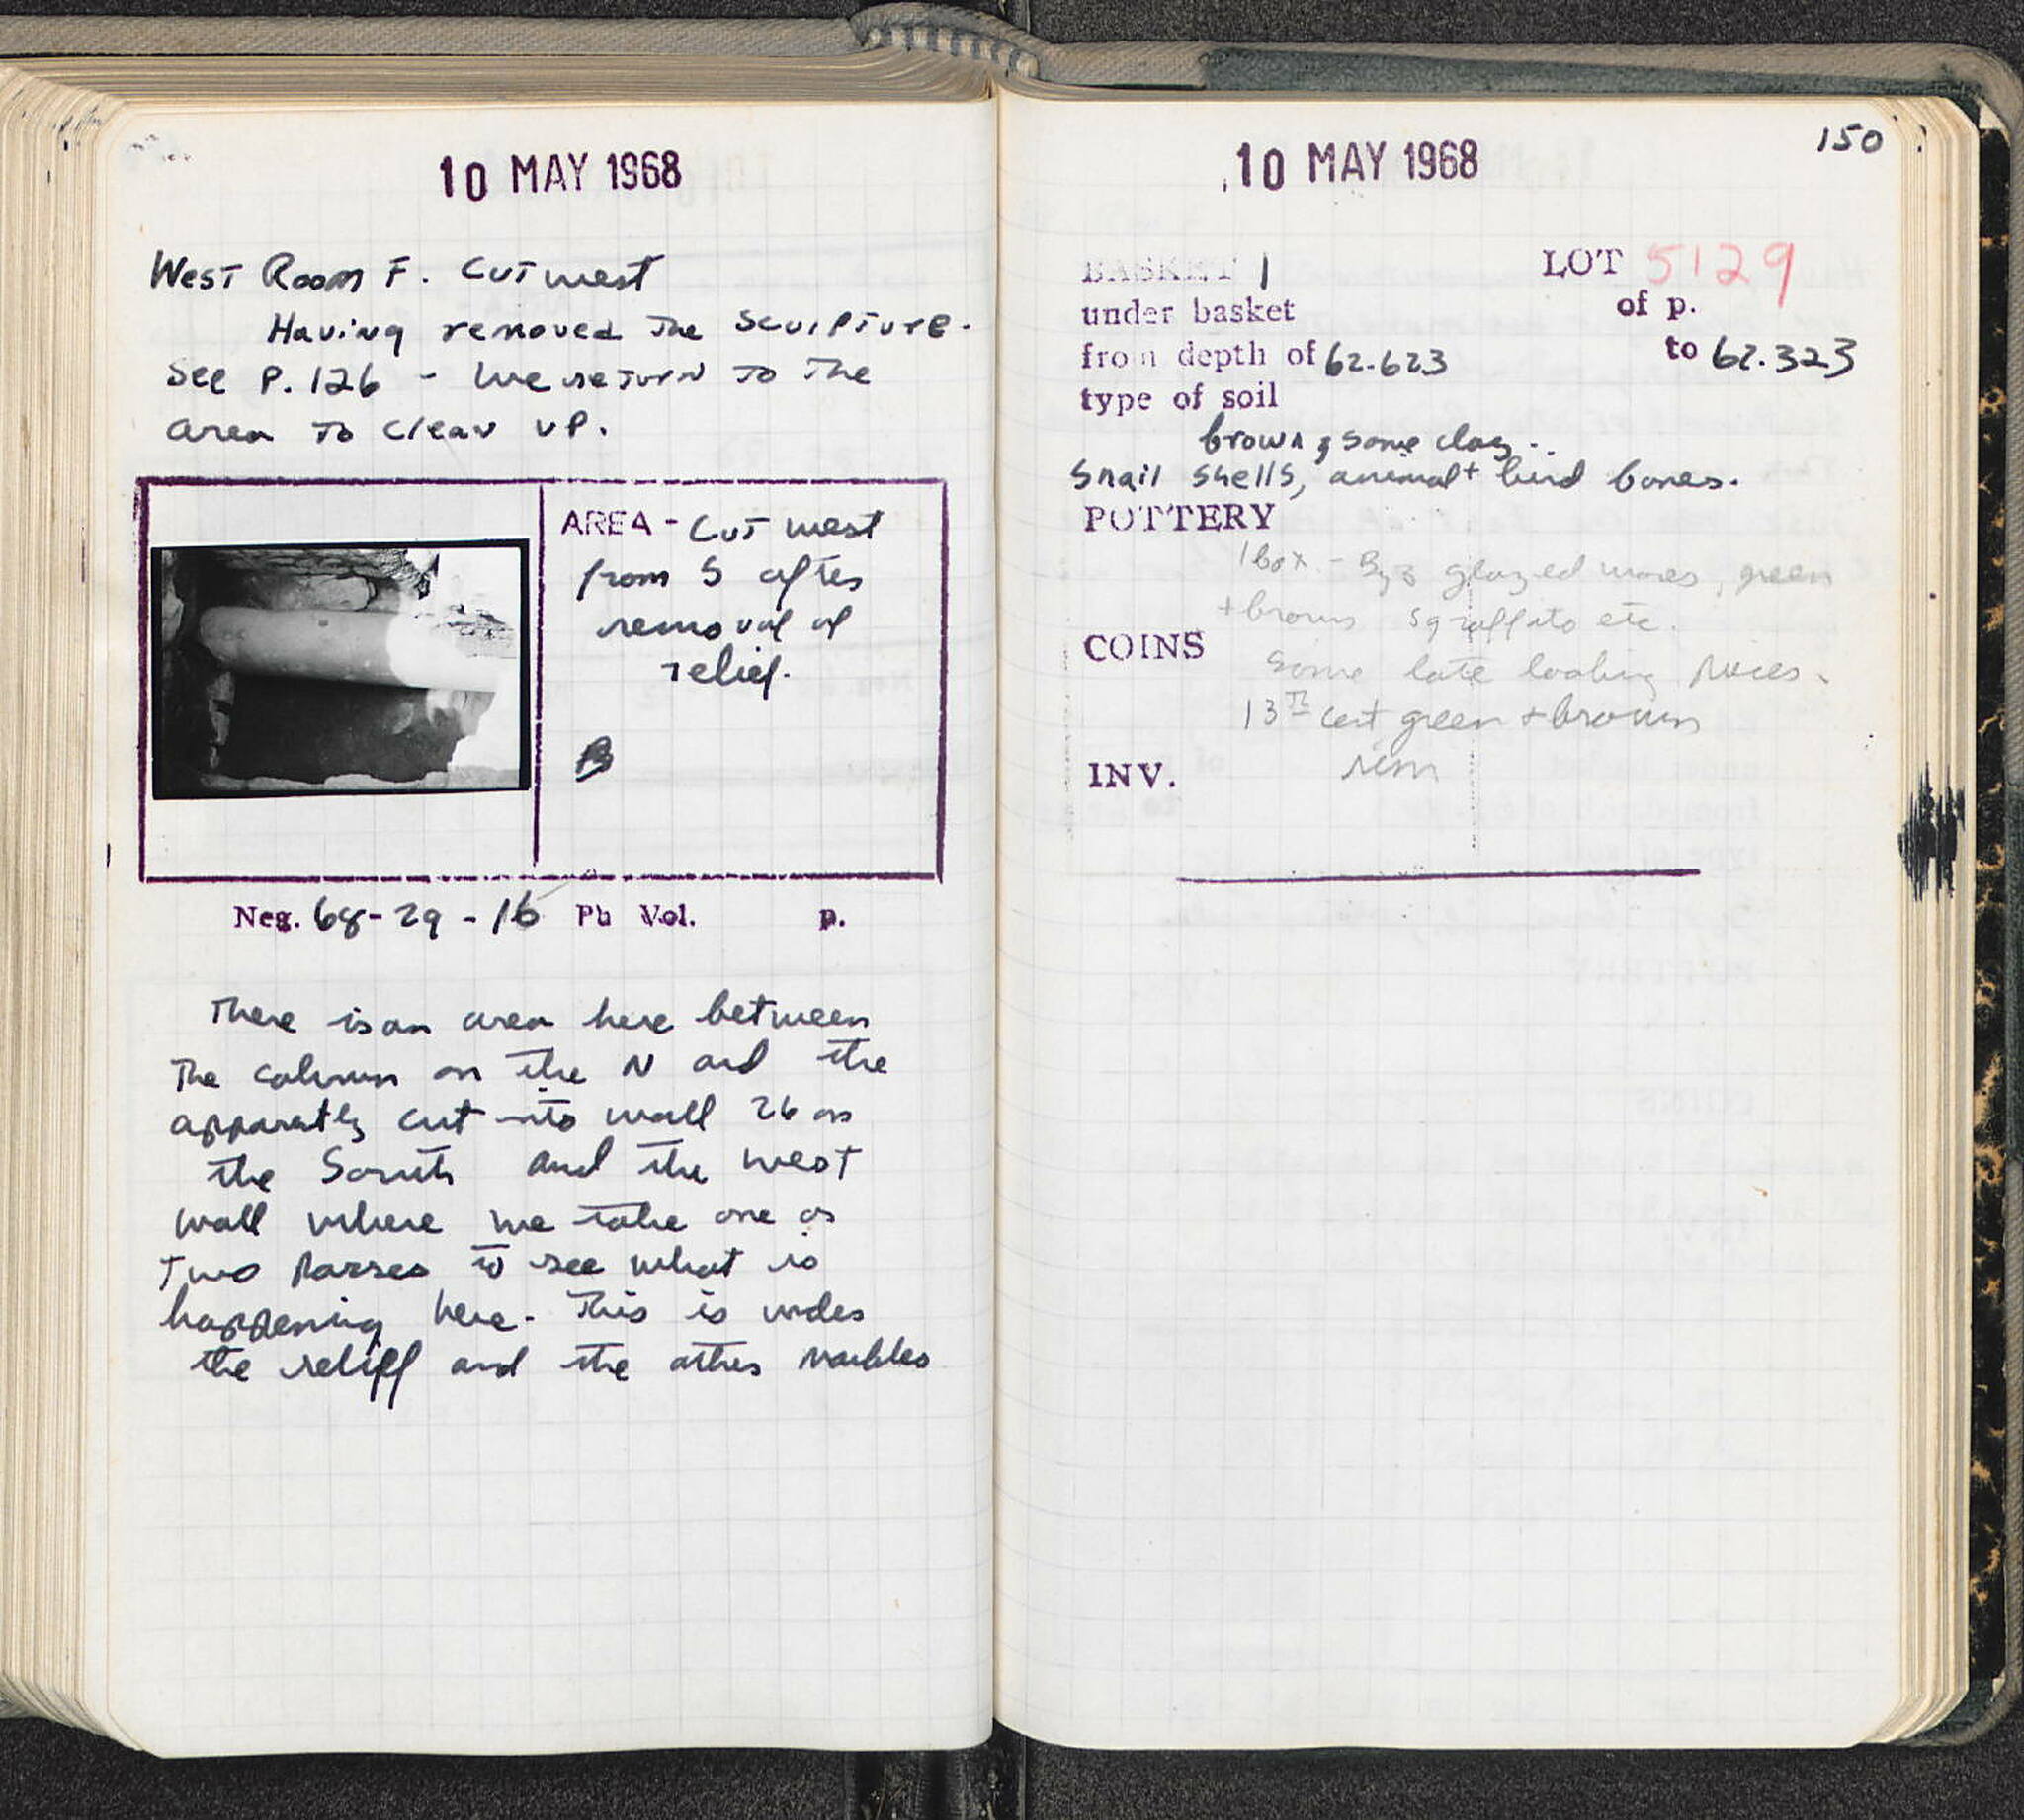 10 MAY 1968
West Room F. Cut west
Having removed the sculpture.
See P. 126 - we return to the
area to clean up.
AREA - Cut west
from S after
removal of
relief.
Neg. 68-29-16 Ph Vol. p.
There is an area here between
The column on the N and the
apparently cut into wall 26 on
the South and the west
wall where we take one or
two passes to see what is
happening here. This is under
the relief and the other marbles
150
10 MAY 1968
BASKET 1 LOT 5129
under basket of p.
from depth of 62.623 to 62.323
type of soil
brown, some clay.
Snail shells, animal + bird bones.
POTTERY
1 box - Byz glazed wares, green
+ brown sgraffito etc.
COINS
Some late looking pieces.
13th cent green + brown
rim
INV.